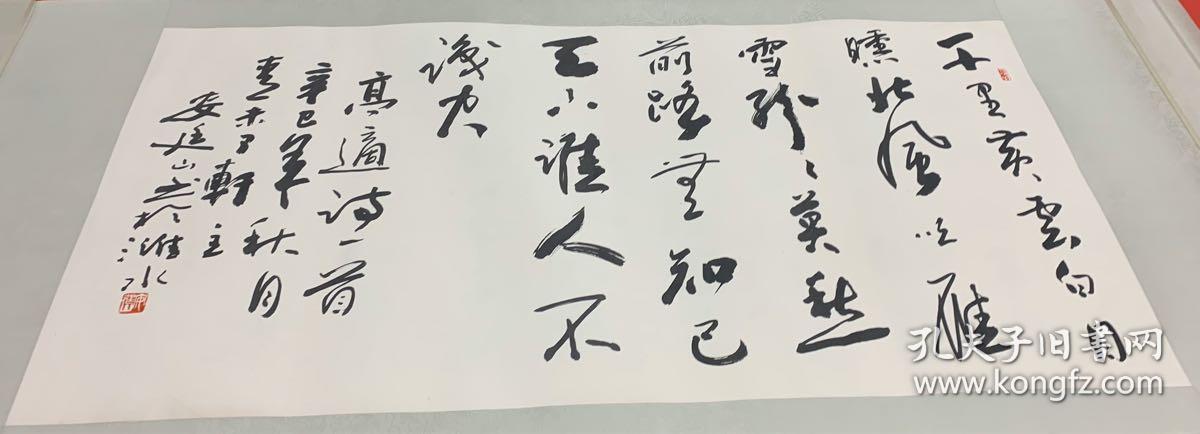 千里黄雲白日
曛北風吹雁
雪纷々莫愁
前路無知己
天下誰人不
識君
高適诗一首
辛巳年秋月
青未了軒主
山书於潍水
孔夫子旧书网
www.kongfz.com